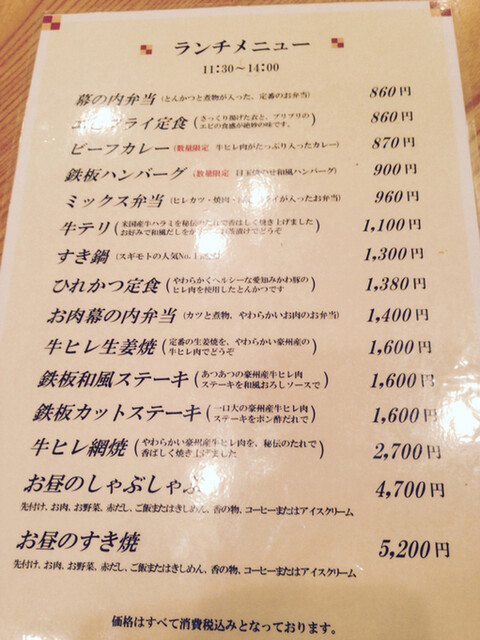 ランチメニュー
11:30～14:00
幕の内弁当 (とんかつと煮物が入った、定番のお弁当) 860円
エビフライ定食 (さっくり揚げた衣と、プリプリの 860円
エビの食感が絶妙の味です。)
ビーフカレー (数量限定 牛ヒレ肉がたっぷり入ったカレー) 870円
鉄板ハンバーグ (数量限定 目玉焼のせ和風ハンバーグ) 900円
ミックス弁当 (ヒレカツ・焼肉・ フライが入ったお弁当) 960円
牛テリ (米国産牛ハラミを秘伝のたれで香ばしく焼き上げました 1,100円
お好みで和風だしをか お茶漬けでどうぞ)
すき鍋 (スギモトの人気No.1 1,300円
ひれかつ定食 (やわらかくヘルシーな愛知みかわ豚の 1,380円
ヒレ肉を使用したとんかつです)
お肉幕の内弁当 (カツと煮物、やわらかいお肉のお弁当) 1,400円
牛ヒレ生姜焼 (定番の生姜焼を、やわらかい豪州産の 1,600円
牛ヒレ肉でどうぞ)
鉄板和風ステーキ (あつあつの豪州産牛ヒレ肉 1,600円
ステーキを和風おろしソースで)
鉄板カットステーキ (一口大の豪州産牛ヒレ肉 1,600円
ステーキをポン酢だれで)
牛ヒレ網焼 (やわらかい豪州産牛ヒレ肉を、秘伝のたれで 2,700円
香ばしく焼き上げました)
お昼のしゃぶしゃぶ 4,700円
先付け、お肉、お野菜、赤だし、ご飯またはきしめん、香の物、コーヒーまたはアイスクリーム
お昼のすき焼 5,200円
先付け、お肉、お野菜、赤だし、ご飯またはきしめん、香の物、コーヒーまたはアイスクリーム
価格はすべて消費税込みとなっております。